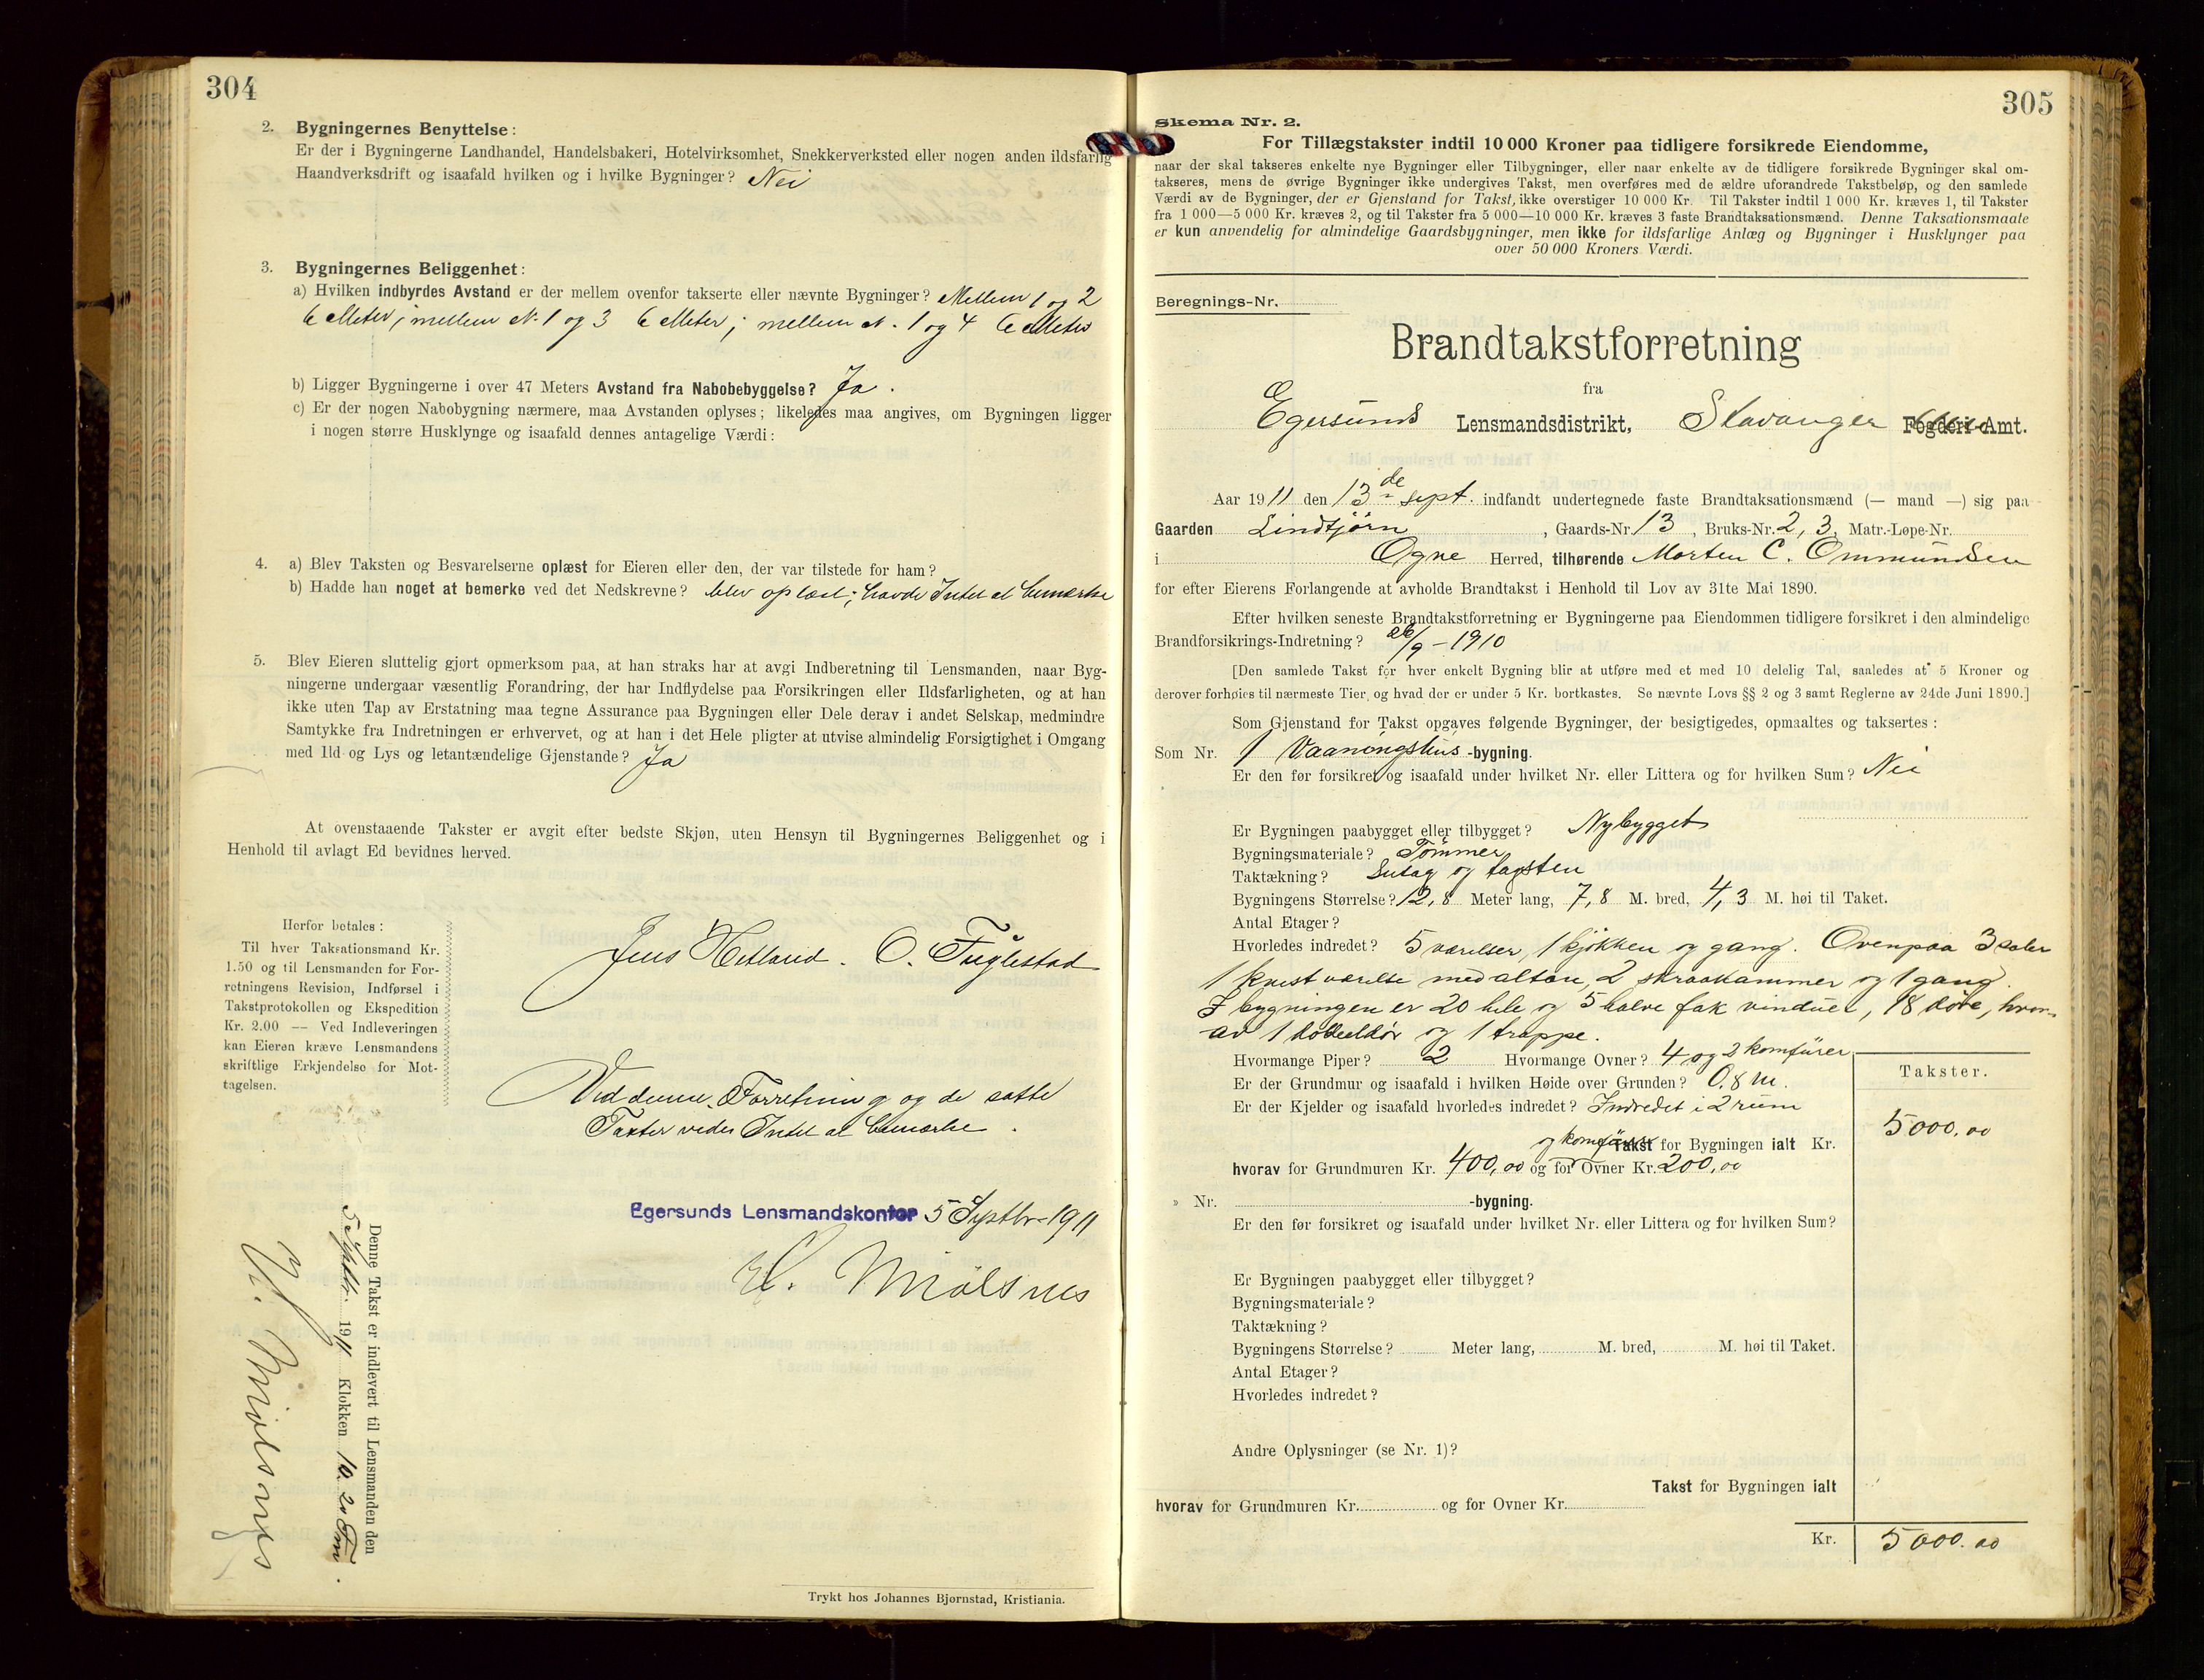 304
2. Bygningernes Benyttelse:
Er der i Bygningerne Landhandel, Handelsbakeri, Hotelvirksomhet, Snekkerverksted eller nogen anden ildsfarlig
Haandverksdrift og isaafald hvilken og i hvilke Bygninger? Nei
3. Bygningernes Beliggenhet:
a) Hvilken indbyrdes Avstand er der mellem ovenfor takserte eller nævnte Bygninger? Mellem 1 og 2
6 Meter; mellem N. 1 og 3 6 Meter; mellem N. 1 og 4 6 Meter
b) Ligger Bygningerne i over 47 Meters Avstand fra Nabobebyggelse? Ja.
c) Er der nogen Nabobygning nærmere, maa Avstanden oplyses; likeledes maa angives, om Bygningen ligger
i nogen større Husklynge og isaafald dennes antagelige Værdi:
4. a) Blev Taksten og Besvarelserne oplæst for Eieren eller den, der var tilstede for ham?
b) Hadde han noget at bemerke ved det Nedskrevne? blev oplæst; havde Intet at bemærke
5. Blev Eieren sluttelig gjort opmerksom paa, at han straks har at avgi Indberetning til Lensmanden, naar Byg-
ningerne undergaar væsentlig Forandring, der har Indflydelse paa Forsikringen eller Ildsfarligheten, og at han
ikke uten Tap av Erstatning maa tegne Assurance paa Bygningen eller Dele derav i andet Selskap, medmindre
Samtykke fra Indretningen er erhvervet, og at han i det Hele pligter at utvise almindelig Forsigtighet i Omgang
med Ild og Lys og letantændelige Gjenstande? Ja
At ovenstaaende Takster er avgit efter bedste Skjøn, uten Hensyn til Bygningernes Beliggenhet og i
Henhold til avlagt Ed bevidnes herved.
Herfor betales:
Til hver Taksationsmand Kr.
1.50 og til Lensmanden for For-
retningens Revision, Indførsel i
Takstprotokollen og Ekspedition
Kr. 2.00 — Ved Indleveringen
kan Eieren kræve Lensmandens
skriftlige Erkjendelse for Mot-
tagelsen.
Jens Hetland. O. Fuglestad
Ved denne Forretning og de satte
Taxter vides Intet at bemærke.
Egersunds Lensmandskontor 5 Septbr. 1911
H. Mjølsnes
Denne Takst er indlevert til Lensmanden den
5 Septbr. 1911 Klokken 10.20 Fm.
H. Mjølsnes
Trykt hos Johannes Bjørnstad, Kristiania.
305
Skema Nr. 2.
For Tillægstakster indtil 10 000 Kroner paa tidligere forsikrede Eiendomme,
naar der skal takseres enkelte nye Bygninger eller Tilbygninger, eller naar enkelte av de tidligere forsikrede Bygninger skal om-
takseres, mens de øvrige Bygninger ikke undergives Takst, men overføres med de ældre uforandrede Takstbeløp, og den samlede
Værdi av de Bygninger, der er Gjenstand for Takst, ikke overstiger 10 000 Kr. Til Takster indtil 1 000 Kr. kræves 1, til Takster
fra 1 000—5 000 Kr. kræves 2, og til Takster fra 5 000—10 000 Kr. kræves 3 faste Brandtaksationsmænd. Denne Taksationsmaate
er kun anvendelig for almindelige Gaardsbygninger, men ikke for ildsfarlige Anlæg og Bygninger i Husklynger paa
over 50 000 Kroners Værdi.
Beregnings-Nr.
Brandtakstforretning
fra
Egersunds Lensmandsdistrikt, Stavanger Fogderi-Amt.
Aar 1911 den 13de sept. indfandt undertegnede faste Brandtaksationsmænd (— mand —) sig paa
Gaarden Lindtjørn, Gaards-Nr 13, Bruks-Nr. 2, 3, Matr.-Løpe-Nr.
i Ogne Herred, tilhørende Morten C. Ommundsen
for efter Eierens Forlangende at avholde Brandtakst i Henhold til Lov av 31te Mai 1890.
Efter hvilken seneste Brandtakstforretning er Bygningerne paa Eiendommen tidligere forsikret i den almindelige
Brandforsikrings-Indretning? 26/9 - 1910
[Den samlede Takst for hver enkelt Bygning blir at utføre med et med 10 delelig Tal, saaledes at 5 Kroner og
derover forhøies til nærmeste Tier, og hvad der er under 5 Kr. bortkastes. Se nævnte Lovs §§ 2 og 3 samt Reglerne av 24de Juni 1890.]
Som Gjenstand for Takst opgaves følgende Bygninger, der besigtigedes, opmaaltes og taksertes:
Som Nr. 1 Vaaningshus -bygning.
Er den før forsikret og isaafald under hvilket Nr. eller Littera og for hvilken Sum? Nei
Er Bygningen paabygget eller tilbygget? Nybygget
Bygningsmateriale? Tømmer
Taktækning? Sutag og tagsten
Bygningens Størrelse? 12,8 Meter lang, 7,8 M. bred, 4,3 M. høi til Taket.
Antal Etager?
Hvorledes indredet? 5 værelser, 1 kjøkken og gang. Ovenpaa 3 saler
1 kvistværelse med altan, 2 skraakammer og 1 gang.
I bygningen er 20 hele og 5 halve fak vinduer, 18 døre, hvor-
av 1 dobbeltdør og 1 trappe.
Hvormange Piper? 2 Hvormange Ovner? 4 og 2 komfürer
Er der Grundmur og isaafald i hvilken Høide over Grunden? 0,8 m.
Er der Kjelder og isaafald hvorledes indredet? Indredet i 2 rum
Takster.
5000,00
og komfürer Takst for Bygningen ialt Kr.
hvorav for Grundmuren Kr. 400,00 og for Ovner Kr. 200,00
» Nr. -bygning.
Er den før forsikret og isaafald under hvilket Nr. eller Littera og for hvilken Sum?
Er Bygningen paabygget eller tilbygget?
Bygningsmateriale?
Taktækning?
Bygningens Størrelse? Meter lang, M. bred, M. høi til Taket.
Antal Etager?
Hvorledes indredet?
Andre Oplysninger (se Nr. 1)?
Takst for Bygningen ialt
hvorav for Grundmuren Kr. og for Ovner Kr.
Kr. 5000.00